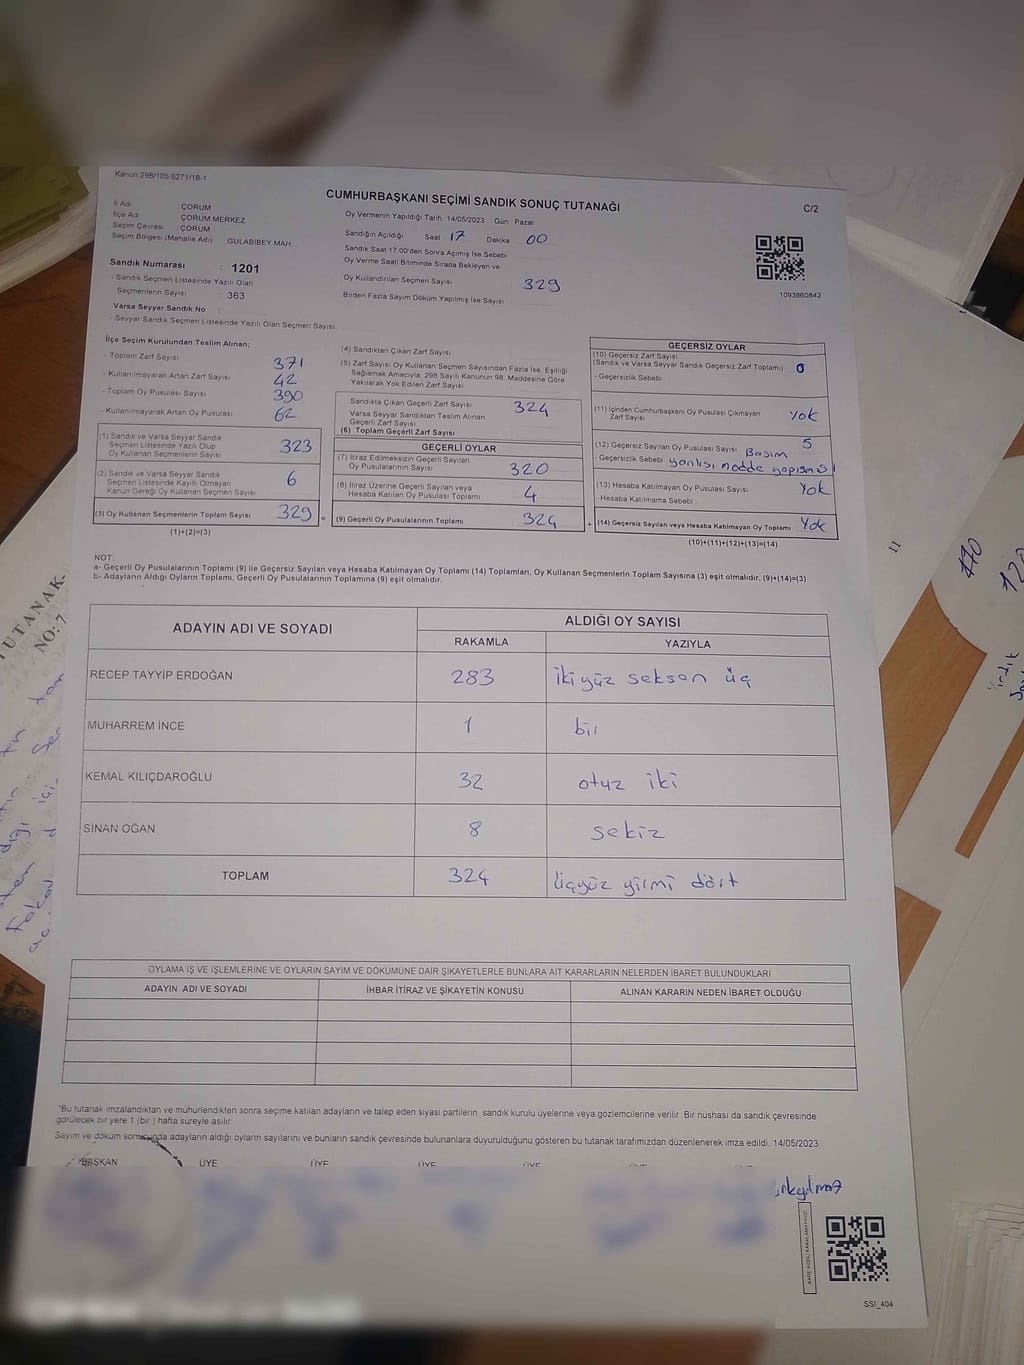 Kanun:298/105 6271/18-1
CUMHURBAŞKANI SEÇİMİ SANDIK SONUÇ TUTANAĞI
C/2
İl Adı ÇORUM
İlçe Adı ÇORUM MERKEZ
Seçim Çevresi : ÇORUM
Seçim Bölgesi (Mahalle Adı) GULABİBEY MAH.
Sandık Numarası : 1201
- Sandık Seçmen Listesinde Yazılı Olan
Seçmenlerin Sayısı : 363
Varsa Seyyar Sandık No :
- Seyyar Sandık Seçmen Listesinde Yazılı Olan Seçmen Sayısı:
Oy Vermenin Yapıldığı Tarih: 14/05/2023 Gün Pazar
Sandığın Açıldığı Saat 17 Dakika 00
Sandık Saat 17.00'den Sonra Açımış İse Sebebi
Oy Verme Saati Bitiminde Sırada Bekleyen ve
Oy Kullandırılan Seçmen Sayısı 329
Birden Fazla Sayım Döküm Yapılmış İse Sayısı
1093860842
İlçe Seçim Kurulundan Teslim Alınan;
- Toplam Zarf Sayısı 371
- Kullanılmayarak Artan Zarf Sayısı 42
- Toplam Oy Pusulası Sayısı 390
- Kullanılmayarak Artan Oy Pusulası 62
(1) Sandık ve Varsa Seyyar Sandık
Seçmen Listesinde Yazılı Olup
Oy Kullanan Seçmenlerin Sayısı 323
(2) Sandık ve Varsa Seyyar Sandık
Seçmen Listesinde Kayıtlı Olmayan
Kanun Gereği Oy Kullanan Seçmen Sayısı 6
(3) Oy Kullanan Seçmenlerin Toplam Sayısı 329 =
(1)+(2)=(3)
(4) Sandıktan Çıkan Zarf Sayısı
(5) Zarf Sayısı Oy Kullanan Seçmen Sayısından Fazla İse, Eşitliği
Sağlamak Amacıyla, 298 Sayılı Kanunun 98. Maddesine Göre
Yakılarak Yok Edilen Zarf Sayısı
Sandıkta Çıkan Geçerli Zarf Sayısı 324
Varsa Seyyar Sandıktan Teslim Alınan
Geçerli Zarf Sayısı
(6) Toplam Geçerli Zarf Sayısı
GEÇERLİ OYLAR
(7) İtiraz Edilmeksizin Geçerli Sayılan
Oy Pusulalarının Sayısı 320
(8) İtiraz Üzerine Geçerli Sayılan veya
Hesaba Katılan Oy Pusulası Toplamı 4
(9) Geçerli Oy Pusulalarının Toplamı 324 +
GEÇERSİZ OYLAR
(10) Geçersiz Zarf Sayısı
(Sandık ve Varsa Seyyar Sandık Geçersiz Zarf Toplamı) 0
- Geçersizlik Sebebi
(11) İçinden Cumhurbaşkanı Oy Pusulası Çıkmayan
Zarf Sayısı Yok
(12) Geçersiz Sayılan Oy Pusulası Sayısı 5
- Geçersizlik Sebebi Basım
(13) Hesaba Katılmayan Oy Pusulası Sayısı Yok
- Hesaba Katılmama Sebebi
(14) Geçersiz Sayılan veya Hesaba Katılmayan Oy Toplamı Yok
(10)+(11)+(12)+(13)=(14)
NOT:
a- Geçerli Oy Pusulalarının Toplamı (9) ile Geçersiz Sayılan veya Hesaba Katılmayan Oy Toplamı (14) Toplamları, Oy Kullanan Seçmenlerin Toplam Sayısına (3) eşit olmalıdır. (9)+(14)=(3)
b- Adayların Aldığı Oyların Toplamı, Geçerli Oy Pusulalarının Toplamına (9) eşit olmalıdır.
ADAYIN ADI VE SOYADI
ALDIĞI OY SAYISI
RAKAMLA YAZIYLA
RECEP TAYYİP ERDOĞAN 283 İki yüz seksen üç
MUHARREM İNCE 1 bir
KEMAL KILIÇDAROĞLU 32 otuz iki
SİNAN OĞAN 8 sekiz
TOPLAM 324 Üçyüz yirmi dört
OYLAMA İŞ VE İŞLEMLERİNE VE OYLARIN SAYIM VE DÖKÜMÜNE DAİR ŞİKAYETLERLE BUNLARA AİT KARARLARIN NELERDEN İBARET BULUNDUKLARI
ADAYIN ADI VE SOYADI İHBAR İTİRAZ VE ŞİKAYETİN KONUSU ALINAN KARARIN NEDEN İBARET OLDUĞU
"Bu tutanak imzalandıktan ve mühürlendikten sonra seçime katılan adayların ve talep eden siyasi partilerin, sandık kurulu üyelerine veya gözlemcilerine verilir. Bir nüshası da sandık çevresinde
görülecek bir yere 1 (bir) hafta süreyle asılır.
Sayım ve döküm sonucunda adayların aldığı oyların sayılarını ve bunların sandık çevresinde bulunanlara duyurulduğunu gösteren bu tutanak tarafımızdan düzenlenerek imza edildi. 14/05/2023
BAŞKAN ÜYE ÜYE ÜYE ÜYE
SSI_404
TUTANAK-
NO: 7
11
120